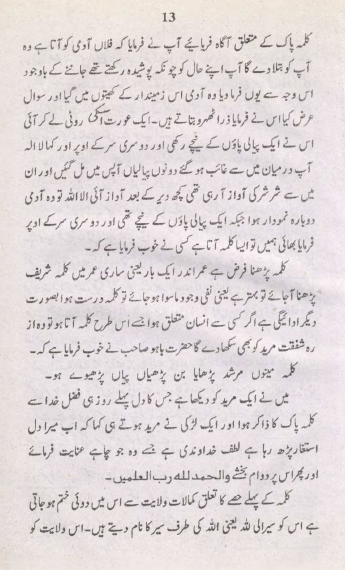 13
کلمہ پاک کے متعلق آگاہ فرمایئے آپ نے فرمایا کہ فلاں آدمی کو آتا ہے وہ
آپ کو بتلا دے گا آپ اپنے حال کو چونکہ پوشیدہ رکھتے تھے جاننے کے باوجود
اس وجہ سے یوں فرما دیا وہ آدمی اس زمیندار کے کھیتوں میں گیا اور سوال
عرض کیا اس نے فرمایا ذرا ٹھہرو بتاتے ہیں۔ ایک عورت روٹی لے کر آئی
اس نے ایک پیالی پاؤں کے نیچے رکھی اور دوسری سر کے اوپر اور کہا لا الہ
آپ درمیان میں سے غائب ہو گئے دونوں پیالیاں آپس میں مل گئیں اور ان
میں سے شر شر کی آواز آ رہی تھی کچھ دیر کے بعد آواز آئی الا اللہ تو وہ آدمی
دوبارہ نمودار ہوا جبکہ ایک پیالی پاؤں کے نیچے تھی اور دوسری سر کے اوپر
فرمایا بھائی ہمیں تو ایسا کلمہ آتا ہے کسی نے خوب فرمایا ہے کہ۔
کلمہ پڑھنا فرض ہے عمر اندر ایک بار یعنی ساری عمر میں کلمہ شریف
پڑھنا آ جائے تو بہتر ہے یعنی نفی وجود ماسوا ہو جائے تو کلمہ درست ہوا بصورت
دیگر ادائیگی ہے اگر کسی سے انسان متعلق ہوا جسے اس طرح کلمہ آتا ہو تو وہ از
رہ شفقت مرید کو بھی سکھا دے گا حضرت باہو صاحب نے خوب فرمایا ہے کہ۔
کلمہ مینوں مرشد پڑھایا بن پڑھیاں پیاں پڑھیوے ہو۔
میں نے ایک مرید کو دیکھا ہے جس کا دل پہلے روز ہی فضل خدا سے
کلمہ پاک کا ذاکر ہوا اور ایک لڑکی نے مرید ہوتے ہی کہا کہ اب میرا دل
استغفار پڑھ رہا ہے لطف خداوندی ہے جسے وہ جو چاہے عنایت فرمائے
اور پھر اس پر دوام بخشے والحمد للہ رب العلمین۔
کلمہ کے پہلے حصے کا تعلق کمالات ولایت سے اس میں دوئی ختم ہو جاتی
ہے اس کو سیر الی للہ یعنی اللہ کی طرف سیر کا نام دیتے ہیں۔ اس ولایت کو